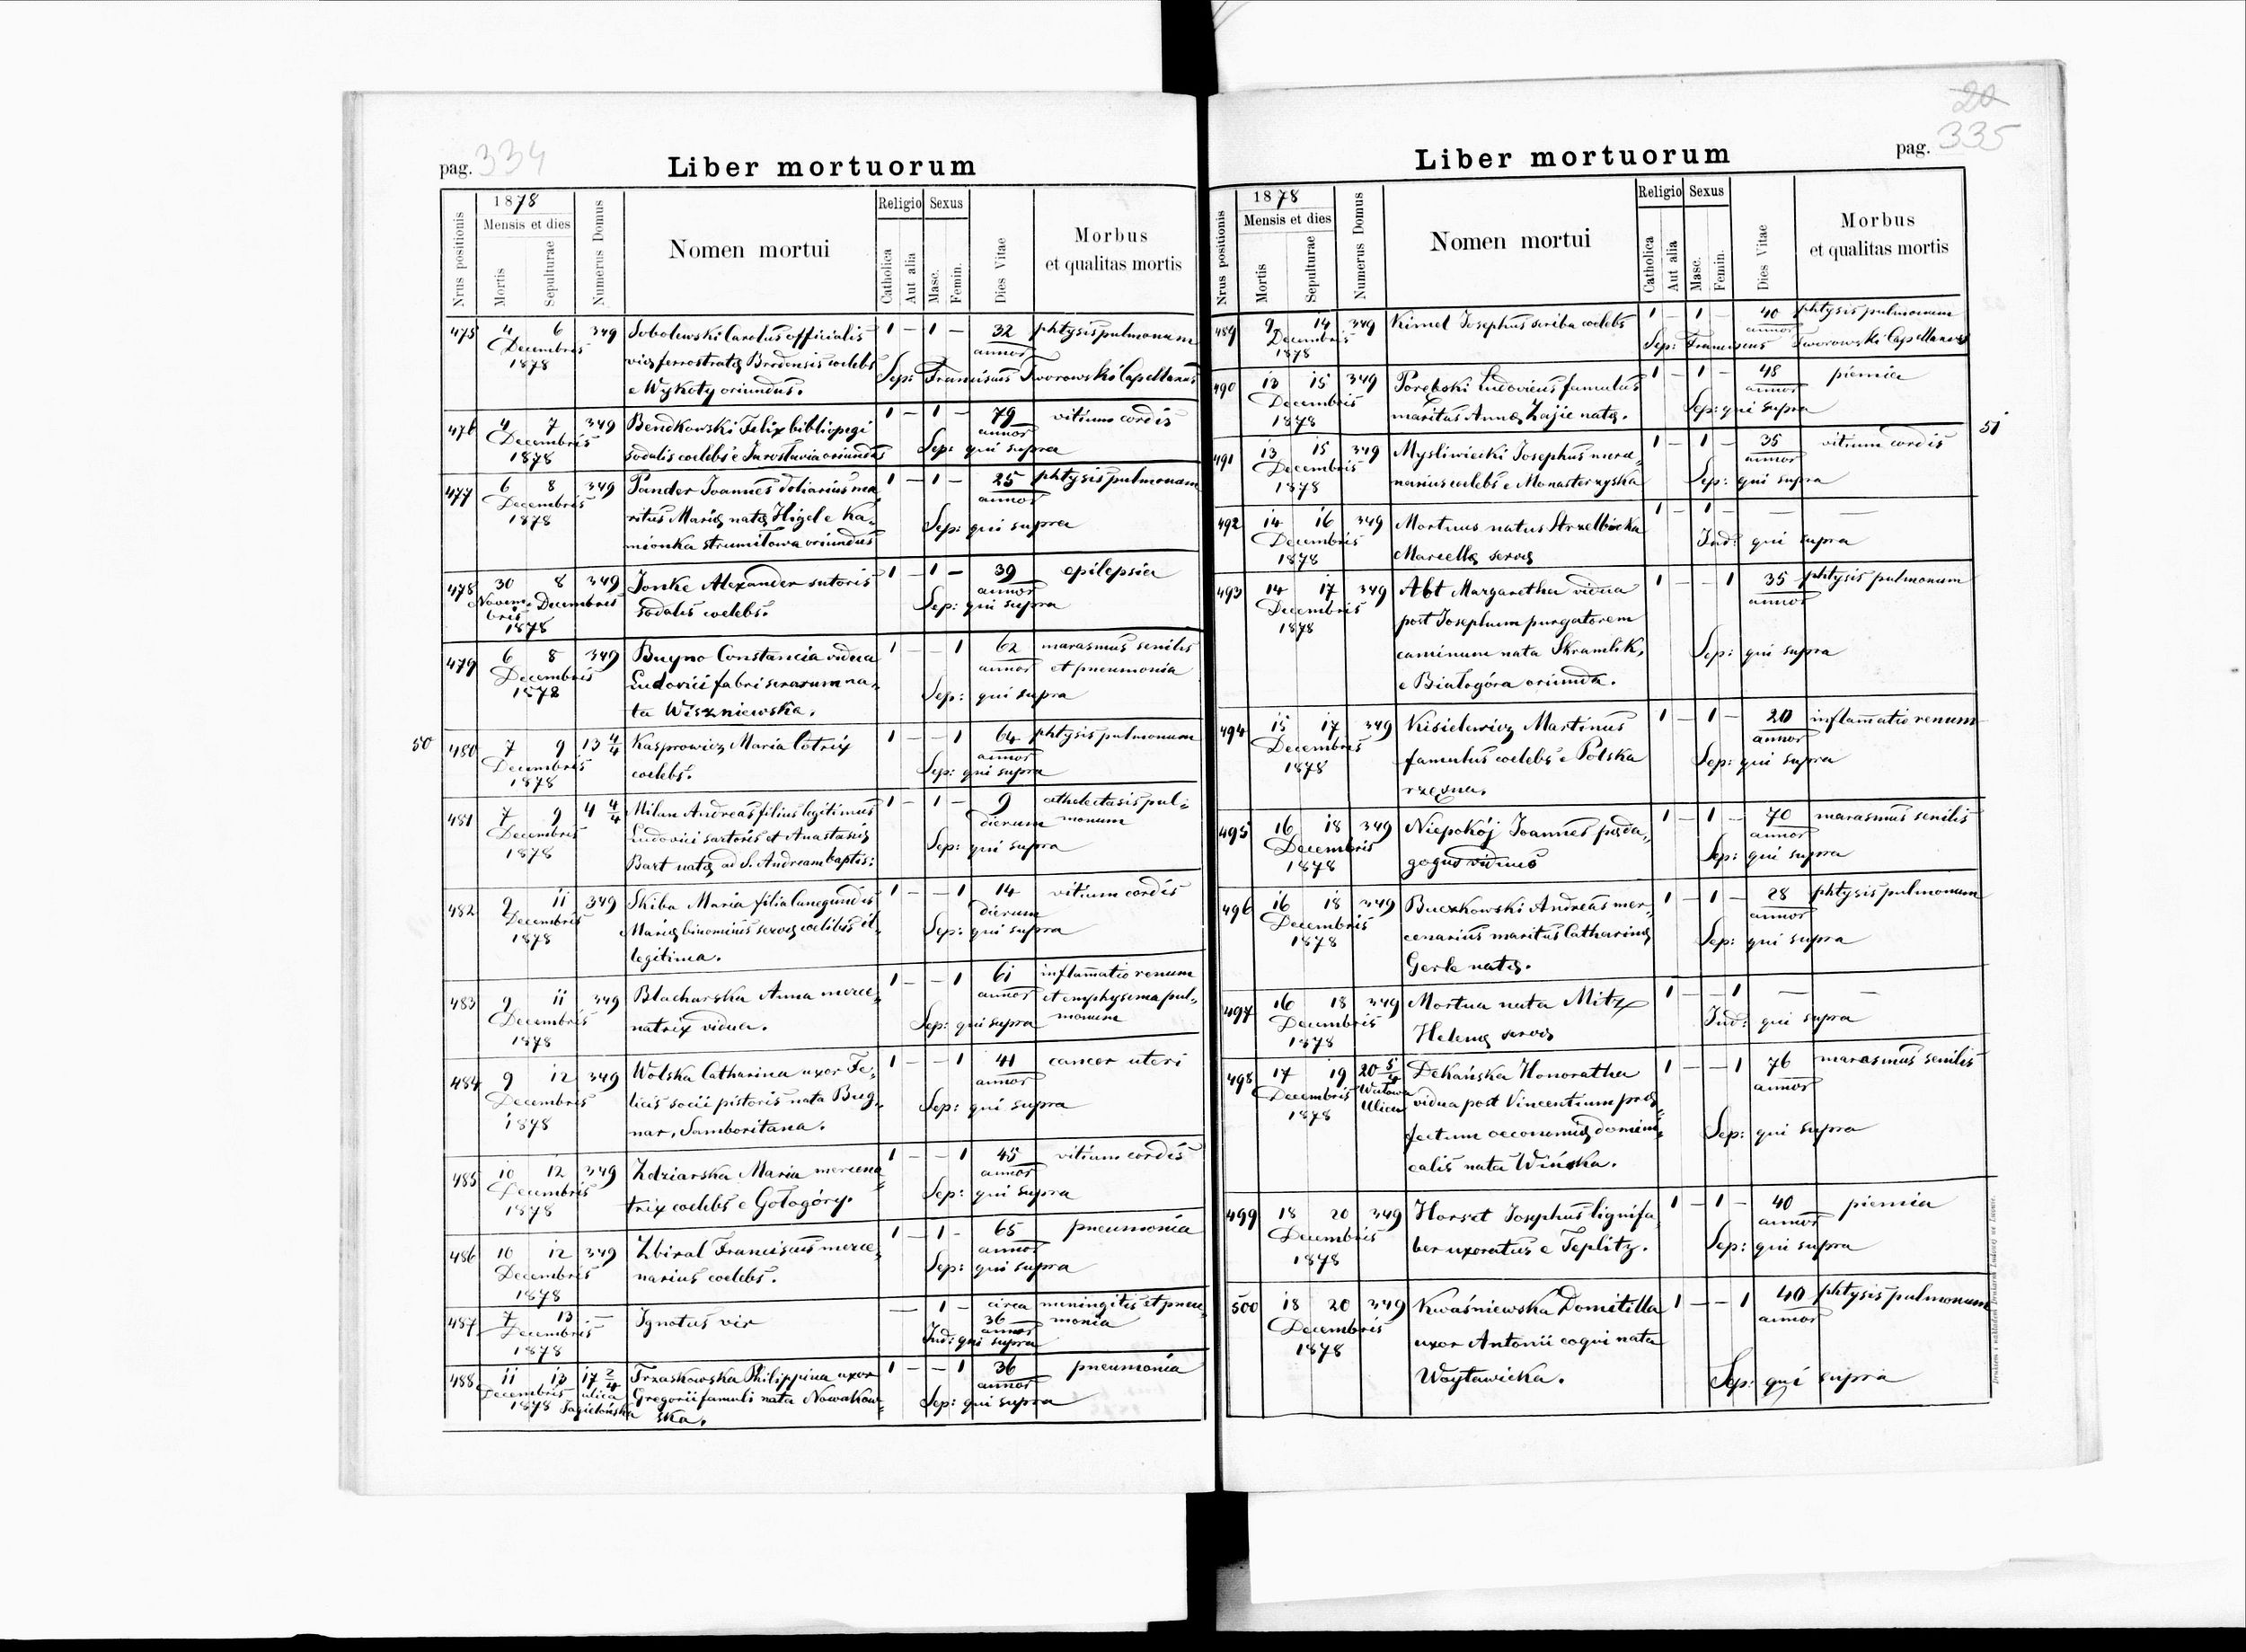 pag. 334
Liber mortuorum
Nrus positionis
1878
Mensis et dies
Mortis
Sepulturae
Numerus Domus
Nomen mortui
Religio
Catholica
Aut alia
Sexus
Masc.
Femin.
Dies Vitae
Morbus
et qualitas mortis
475 4 6 349 Sobolewski Carolus officialis 1 – 1 – 32 phtysis pulmonum
Decembris viæ ferrostratæ Brodensis coelebs annor
1878 e Wykoty oriundus. Sep: Franciscus Tworowski Capellanus
476 4 7 349 Bendkowski Felix bibliopegi 1 – 1 – 79 vitium cordis
Decembris annor
1878 sodalis coelebs e Jaroslavia oriundus Sep: qui supra
477 6 8 349 Pander Joannes doliarius ma 1 – 1 – 25 phtysis pulmonum
Decembris ritus Mariæ natæ Higel e Ka- annor
1878 mionka strumilowa oriundus Sep: qui supra
478 30 8 349 Jonke Alexander sutoris 1 – 1 – 39 epilepsia
Novem- Decembris sodalis coelebs. annor
bris Sep: qui supra
1878
479 6 8 349 Buyno Constancia vidua 1 – – 1 62 marasmus senilis
Decembris Ludovici fabri serarum na- annor et pneumonia
1878 ta Wiszniewska. Sep: qui supra
50 480 7 9 13 4/4 Kasprowicz Maria lotrix 1 – – 1 64 phtysis pulmonum
Decembris coelebs. annor
1878 Sep: qui supra
481 7 9 4 4/4 Milan Andreas filius legitimus 1 – 1 – 9 athelectasis pul-
Decembris Ludovici sartoris et Anastasiæ dierum monum
1878 Bart natæ ad S. Andream baptis: Sep: qui supra
482 9 11 349 Skiba Maria filia Cunegundis 1 – – 1 14 vitium cordis
Decembris Mariæ binominis servæ coelibis il- dierum
1878 legitima. Sep: qui supra
483 9 11 349 Blacharska Anna merce- 1 – – 1 61 inflamatio renum
Decembris natrix vidua. annor et emphysema pul-
1878 Sep: qui supra monum
484 9 12 349 Wolska Catharina uxor Fe- 1 – – 1 41 cancer uteri
Decembris licis socii pistoris nata Bug- annor
1878 nar, Samboritana. Sep: qui supra
485 10 12 349 Zdziarska Maria mercena 1 – – 1 45 vitium cordis
Decembris annor
1878 trix coelebs e Gologóry. Sep: qui supra
486 10 12 349 Zbiral Franciscus merce- 1 – 1 – 65 pneumonia
Decembris narius coelebs. annor
1878 Sep: qui supra
487 7 13 – Ignotus vir – 1 – circa meningitis et pneu-
Decembris 36 monia
1878 annor
Ind: qui supra
488 11 13 17 2/4 Trzaskowska Philippina uxor 1 – – 1 36 pneumonia
Decembris ulica Gregorii famuli nata Nowakow- annor
1878 Jagielońska ska. Sep: qui supra
20
335
Liber mortuorum
pag.
Nrus positionis
1878
Mensis et dies
Mortis
Sepulturae
Numerus Domus
Nomen mortui
Religio
Catholica
Aut alia
Sexus
Masc.
Femin.
Dies Vitae
Morbus
et qualitas mortis
489 9 14 349 Kimel Josephus scriba coelebs 1 – 1 – 40 phtysis pulmonum
Decembris annor
1878 Sep: Franciscus Tworowski Capellanus
490 13 15 349 Porębski Ludovicus famulus 1 – 1 – 48 piemia
Decembris annor
1878 maritus Annæ Zajic natæ. Sep: qui supra
51
491 13 15 349 Mysliwiecki Josephus merce- 1 – 1 – 35 vitium cordis
Decembris annor
1878 narius coelebs e Monasterzyska Sep: qui supra
492 14 16 349 Mortuus natus Strzelbicka 1 – 1 – — —
Decembris Ind: qui supra
1878 Marcellæ servæ
493 14 17 349 Abt Margaretha vidua 1 – – 1 35 phtysis pulmonum
Decembris post Josephum purgatorem annor
1878 caminum nata Skramlik, Sep: qui supra
e Bialogóra oriunda.
494 15 17 349 Kisielewicz Martinus 1 – 1 – 20 inflamatio renum
Decembris famulus coelebs e Polska annor
1878 rzęsna. Sep: qui supra
495 16 18 349 Niepokój Joannes pæda- 1 – 1 – 70 marasmus senilis
Decembris gogus viduus annor
1878 Sep: qui supra
496 16 18 349 Buczkowski Andreas mer- 1 – 1 – 28 phtysis pulmonum
Decembris cenarius maritus Catharinæ annor
1878 Gerla natæ. Sep: qui supra
497 16 18 349 Mortua nata Mitz 1 – – 1 — —
Decembris Helenæ servæ Ind: qui supra
1878
498 17 19 20 5/4 Dekańska Honoratha 1 – – 1 76 marasmus senilis
Decembris Wałowa vidua post Vincentium præ- annor
1878 Ulica fectum oeconomiæ domini- Sep: qui supra
calis nata Wińska.
499 18 20 349 Horset Josephus lignifa 1 – 1 – 40 piemia
Decembris ber uxoratus e Teplitz. annor
1878 Sep: qui supra
500 18 20 349 Kwaśniewska Domitilla 1 – – 1 40 phtysis pulmonum
Decembris uxor Antonii coqui nata annor
1878 Woytawicka. Sep: qui supra